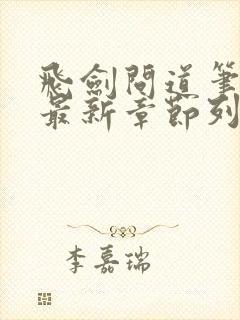 飛劍問道筆
最新章節列
李嘉瑞